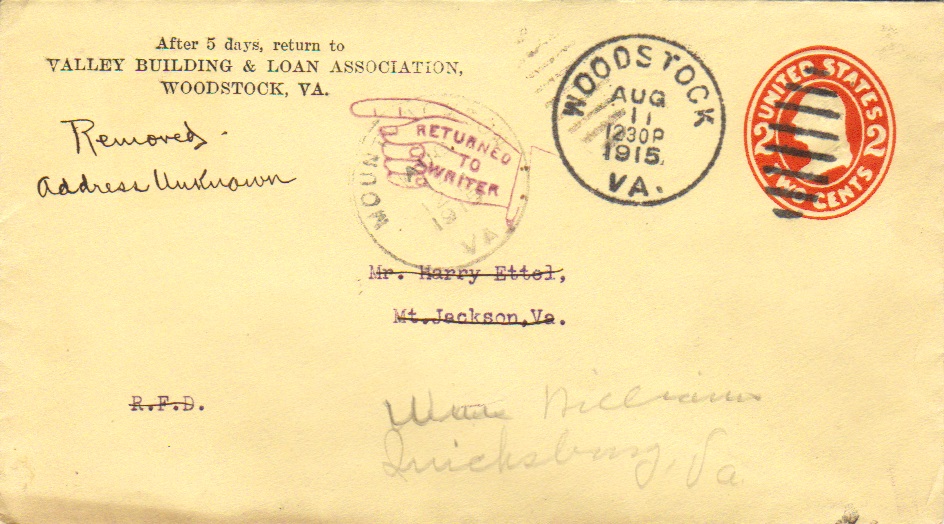 After 5 days, return to
VALLEY BUILDING & LOAN ASSOCIATION,
WOODSTOCK, VA.
Removed.
Address Unknown
RETURNED
TO
WRITER
MOUN
VA
WOODSTOCK
AUG
11
1230P
1915
VA.
UNITED STATES
2 2
TWO CENTS
Mr. Harry Ettel,
Mt.Jackson,Va.
R.F.D.
William
Quicksburg, Va